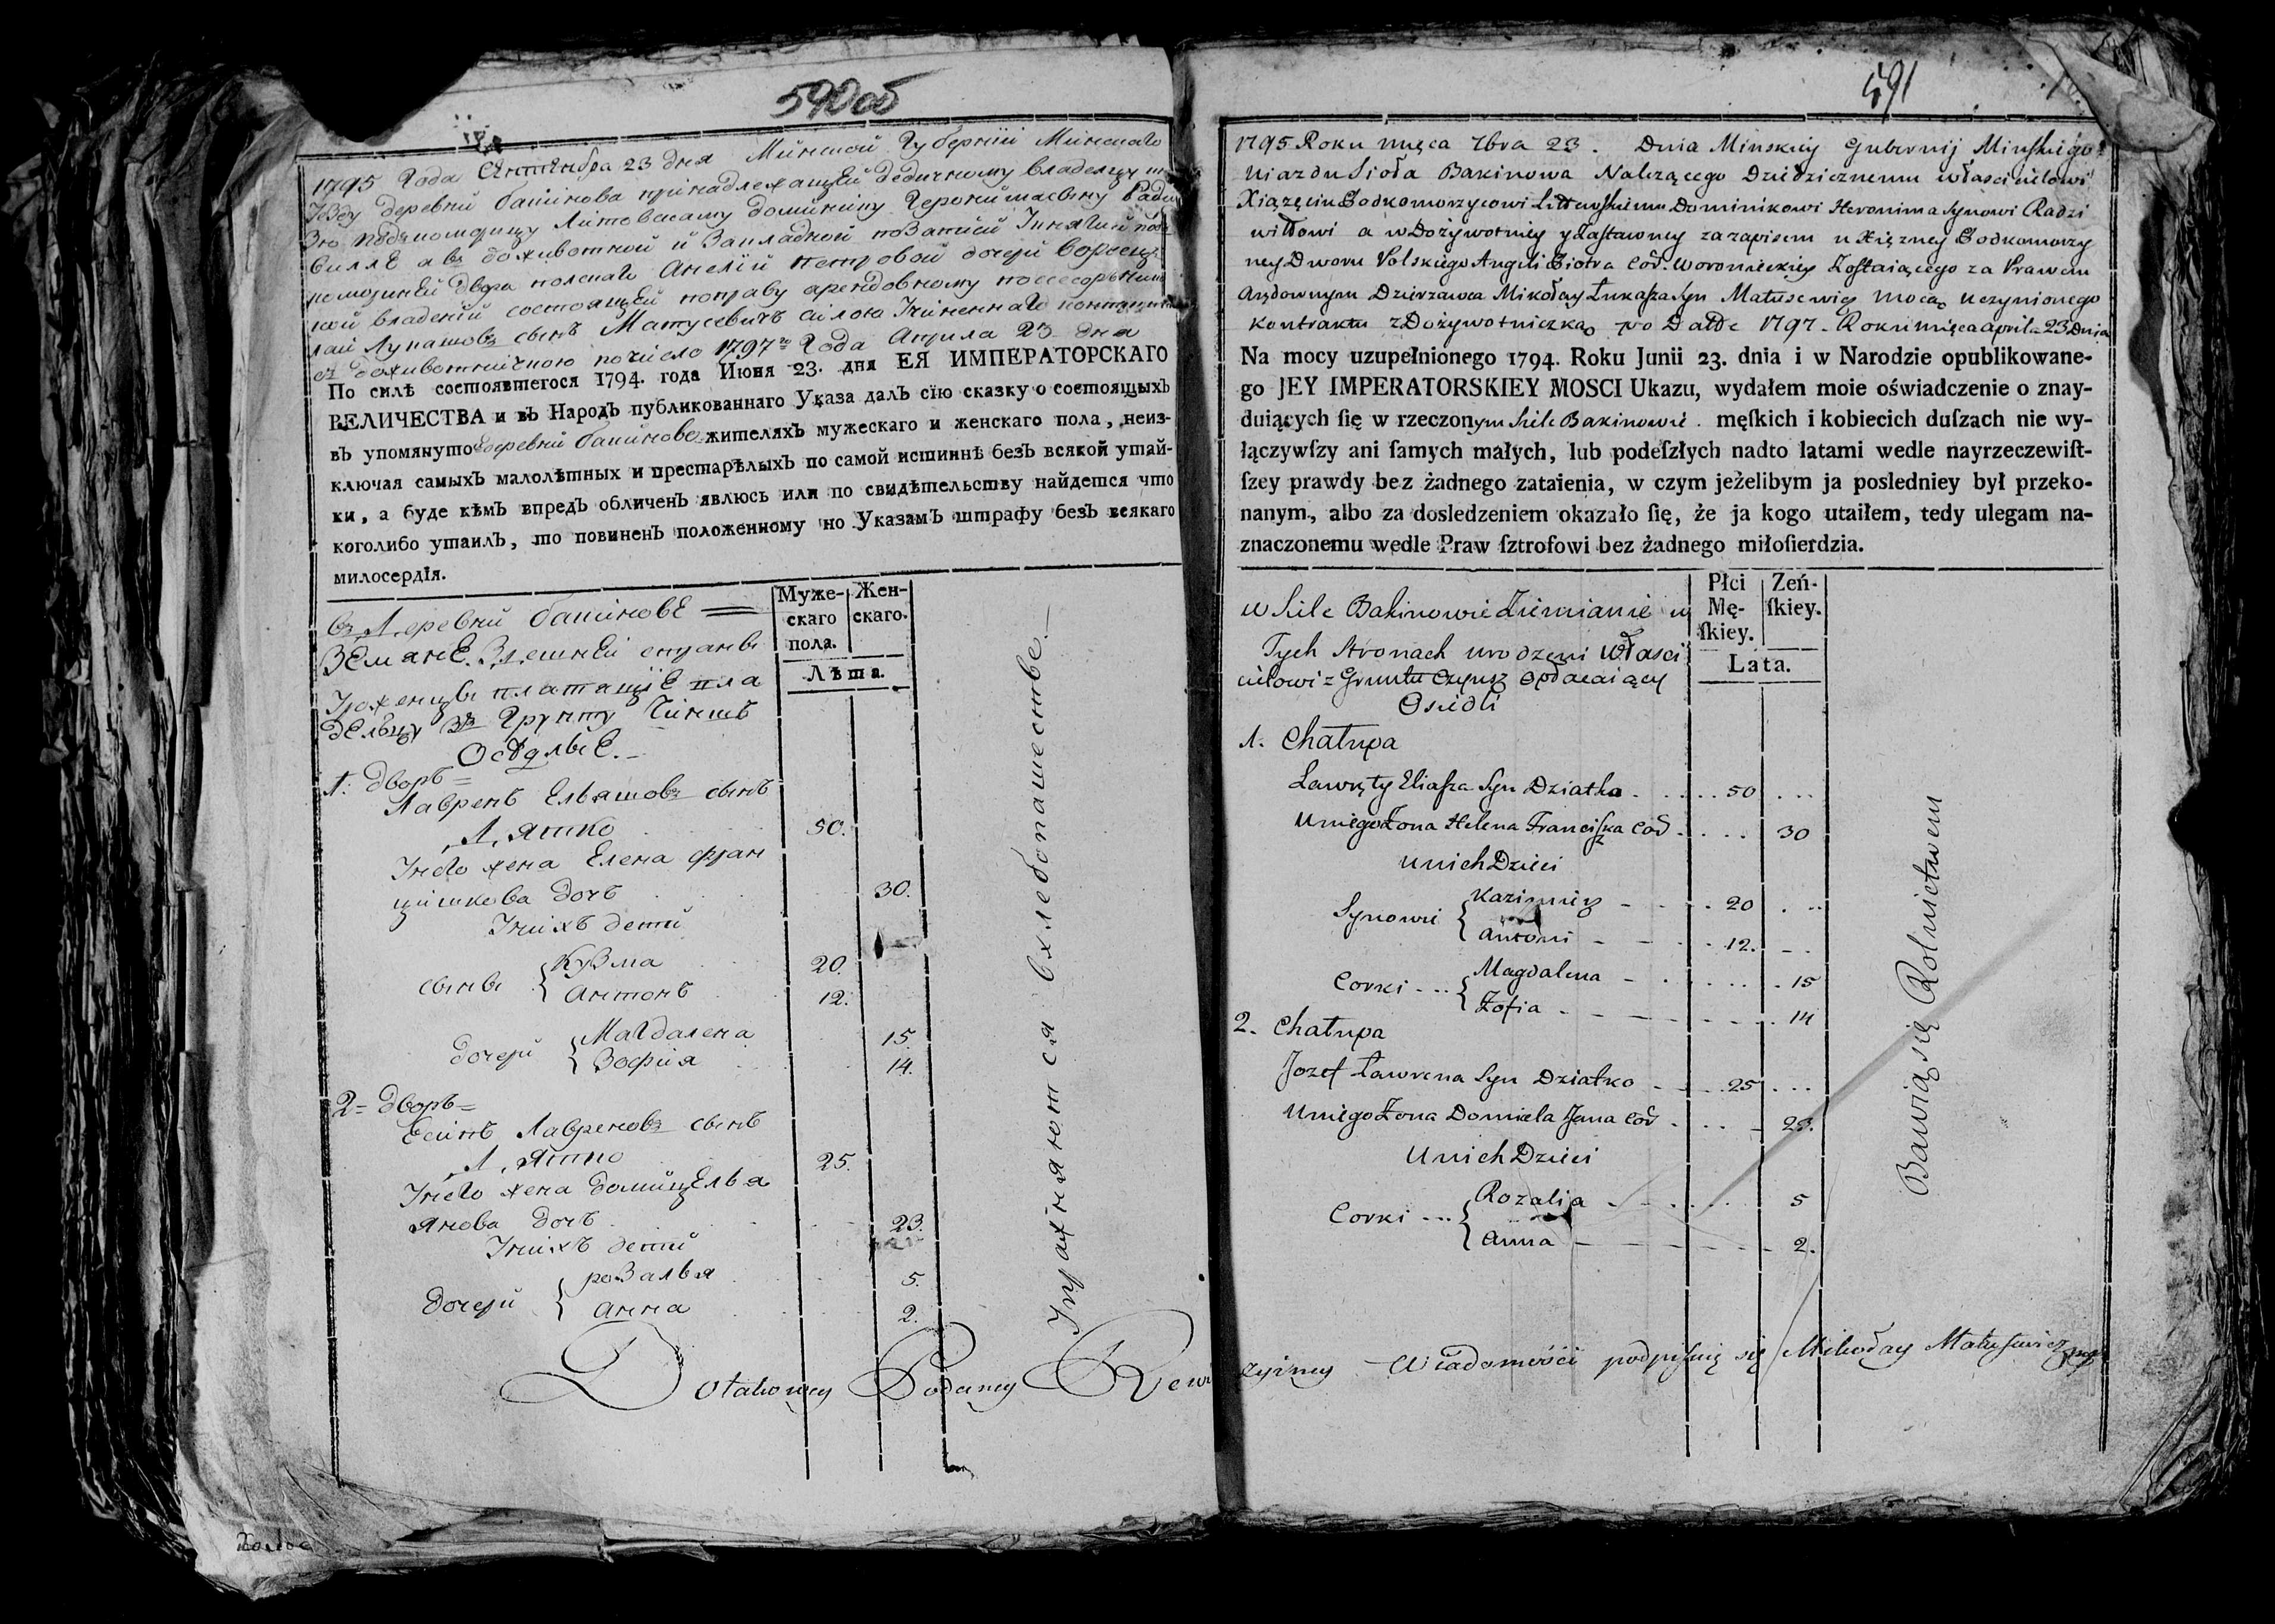 590об
1795 года Сентября 23 дня Минской Губернїи Минскаго
деревни Бакинова принадлежащей дедичному владельцу
Литовскому Доминику Геронимасыну
вилле а въ доживотной и Закладной
двора Анелїи Петровой дочери
владенїи состоящей поправу арендовному
Лукашовъ сынъ Матусевичъ силою Учиненнаго
доживотничкою почисло 1797го Года Априла 23 дня
По силѣ состоявшегося 1794. года Июня 23. дня ЕЯ ИМПЕРАТОРСКАГО
ВЕЛИЧЕСТВА и въ Народъ публикованнаго Указа далъ сїю сказку о состоящыхъ
въ упомянуто деревни Бакинове жителяхъ мужескаго и женскаго пола, неиз-
ключая самыхъ малолѣтных и престарѣлыхъ по самой истиннѣ безъ всякой утай-
ки, а буде кѣмъ впредъ обличенъ явлюсь или по свидѣтельству найдется что
коголибо утаилъ, то повиненъ положенному по Указамъ штрафу безъ всякаго
милосердїя.
въ Деревни Бакинове
Муже-
скаго
пола.
Жен-
скаго.
Лѣта.
Земяне Здешней страны
Уроженцы платащїе вла
дельцу за Грунту Чиншъ
Оседлые.
1. дворъ
Лавренъ Ельяшовъ сынъ
Дятко 50.
Унего жена Елена Фран
цишкова дочъ 30.
Унихъ дети
сыны { Кузма 20.
Антонъ 12.
дочери { Магдалена 15.
Зофия 14.
2 дворъ
Есипъ Лавреновъ сынъ
Дятко 25.
Унего жена Домицелья
Янова дочъ 23.
Унихъ дети
дочери { розалья 5.
анна 2.
Упражняются вхлебопашестве.
591
1795 Roku męca 7bra 23. Dnia Minskiey Gubernij Minskiego
Ujazdu Sioła Bakinowa Należącego Dziedzicznemu własciciełowi
Xiązęciu Podkomorzycowi Littewskiemu Dominikowi Heronima Synowi Radzi
wiłłowi a w Dożywotniey y Zastawney za zapisem u Xiężney Podkomorzy
ney Dworu Polskiego Angeli Piotra Cór. Woronieckiey Zostaiącego za Prawem
Arędownym Dzierzawca Mikołay Łukasza Syn Matusewicz mocą uczynionego
Kontraktu z Dożywotniczką po Datde 1797. Roku mięca aprila 23 Dnia
Na mocy uzupełnionego 1794. Roku Junii 23. dnia i w Narodzie opublikowane-
go JEY IMPERATORSKIEY MOSCI Ukazu, wydałem moie oświadczenie o znay-
duiących ſię w rzeczonym Siele Bakinowie. męſkich i kobiecich duſzach nie wy-
łączywſzy ani ſamych małych, lub podeſzłych nadto latami wedle nayrzeczewiſt-
ſzey prawdy bez żadnego zataienia, w czym jeżelibym ja posledniey był przeko-
nanym, albo za dosledzeniem okazało ſię, że ja kogo utaiłem, tedy ulegam na-
znaczonemu wedle Praw ſztrofowi bez żadnego miłoſierdzia.
w Siele Bakinowie Ziemianie w
Płci
Mę-
ſkiey.
Zeń-
ſkiey.
Lata.
Tych Stronach urodzeni własci
cielowi z Gruntu Czynsz opłacaiący
Osiedli
1. Chałupa
Lawręty Eliasza Syn Dziatko 50
Uniego Zona Helena Franciszka Cór 30
Unich Dzieci
Synowie { Kazimierz 20
Antoni 12.
Corki { Magdalena 15
Zofia 14
2. Chałupa
Jozef Ławrena Syn Dziatko 25
Uniego Zona Domicela Jana Cór 23.
Unich Dzieci
Corki { Rozalia 5
Anna 2.
Bawią się Rolnictwem
Dotakowey Podaney Rewizyiney Wiadomości podpisuię się Mikołay Matusewicz